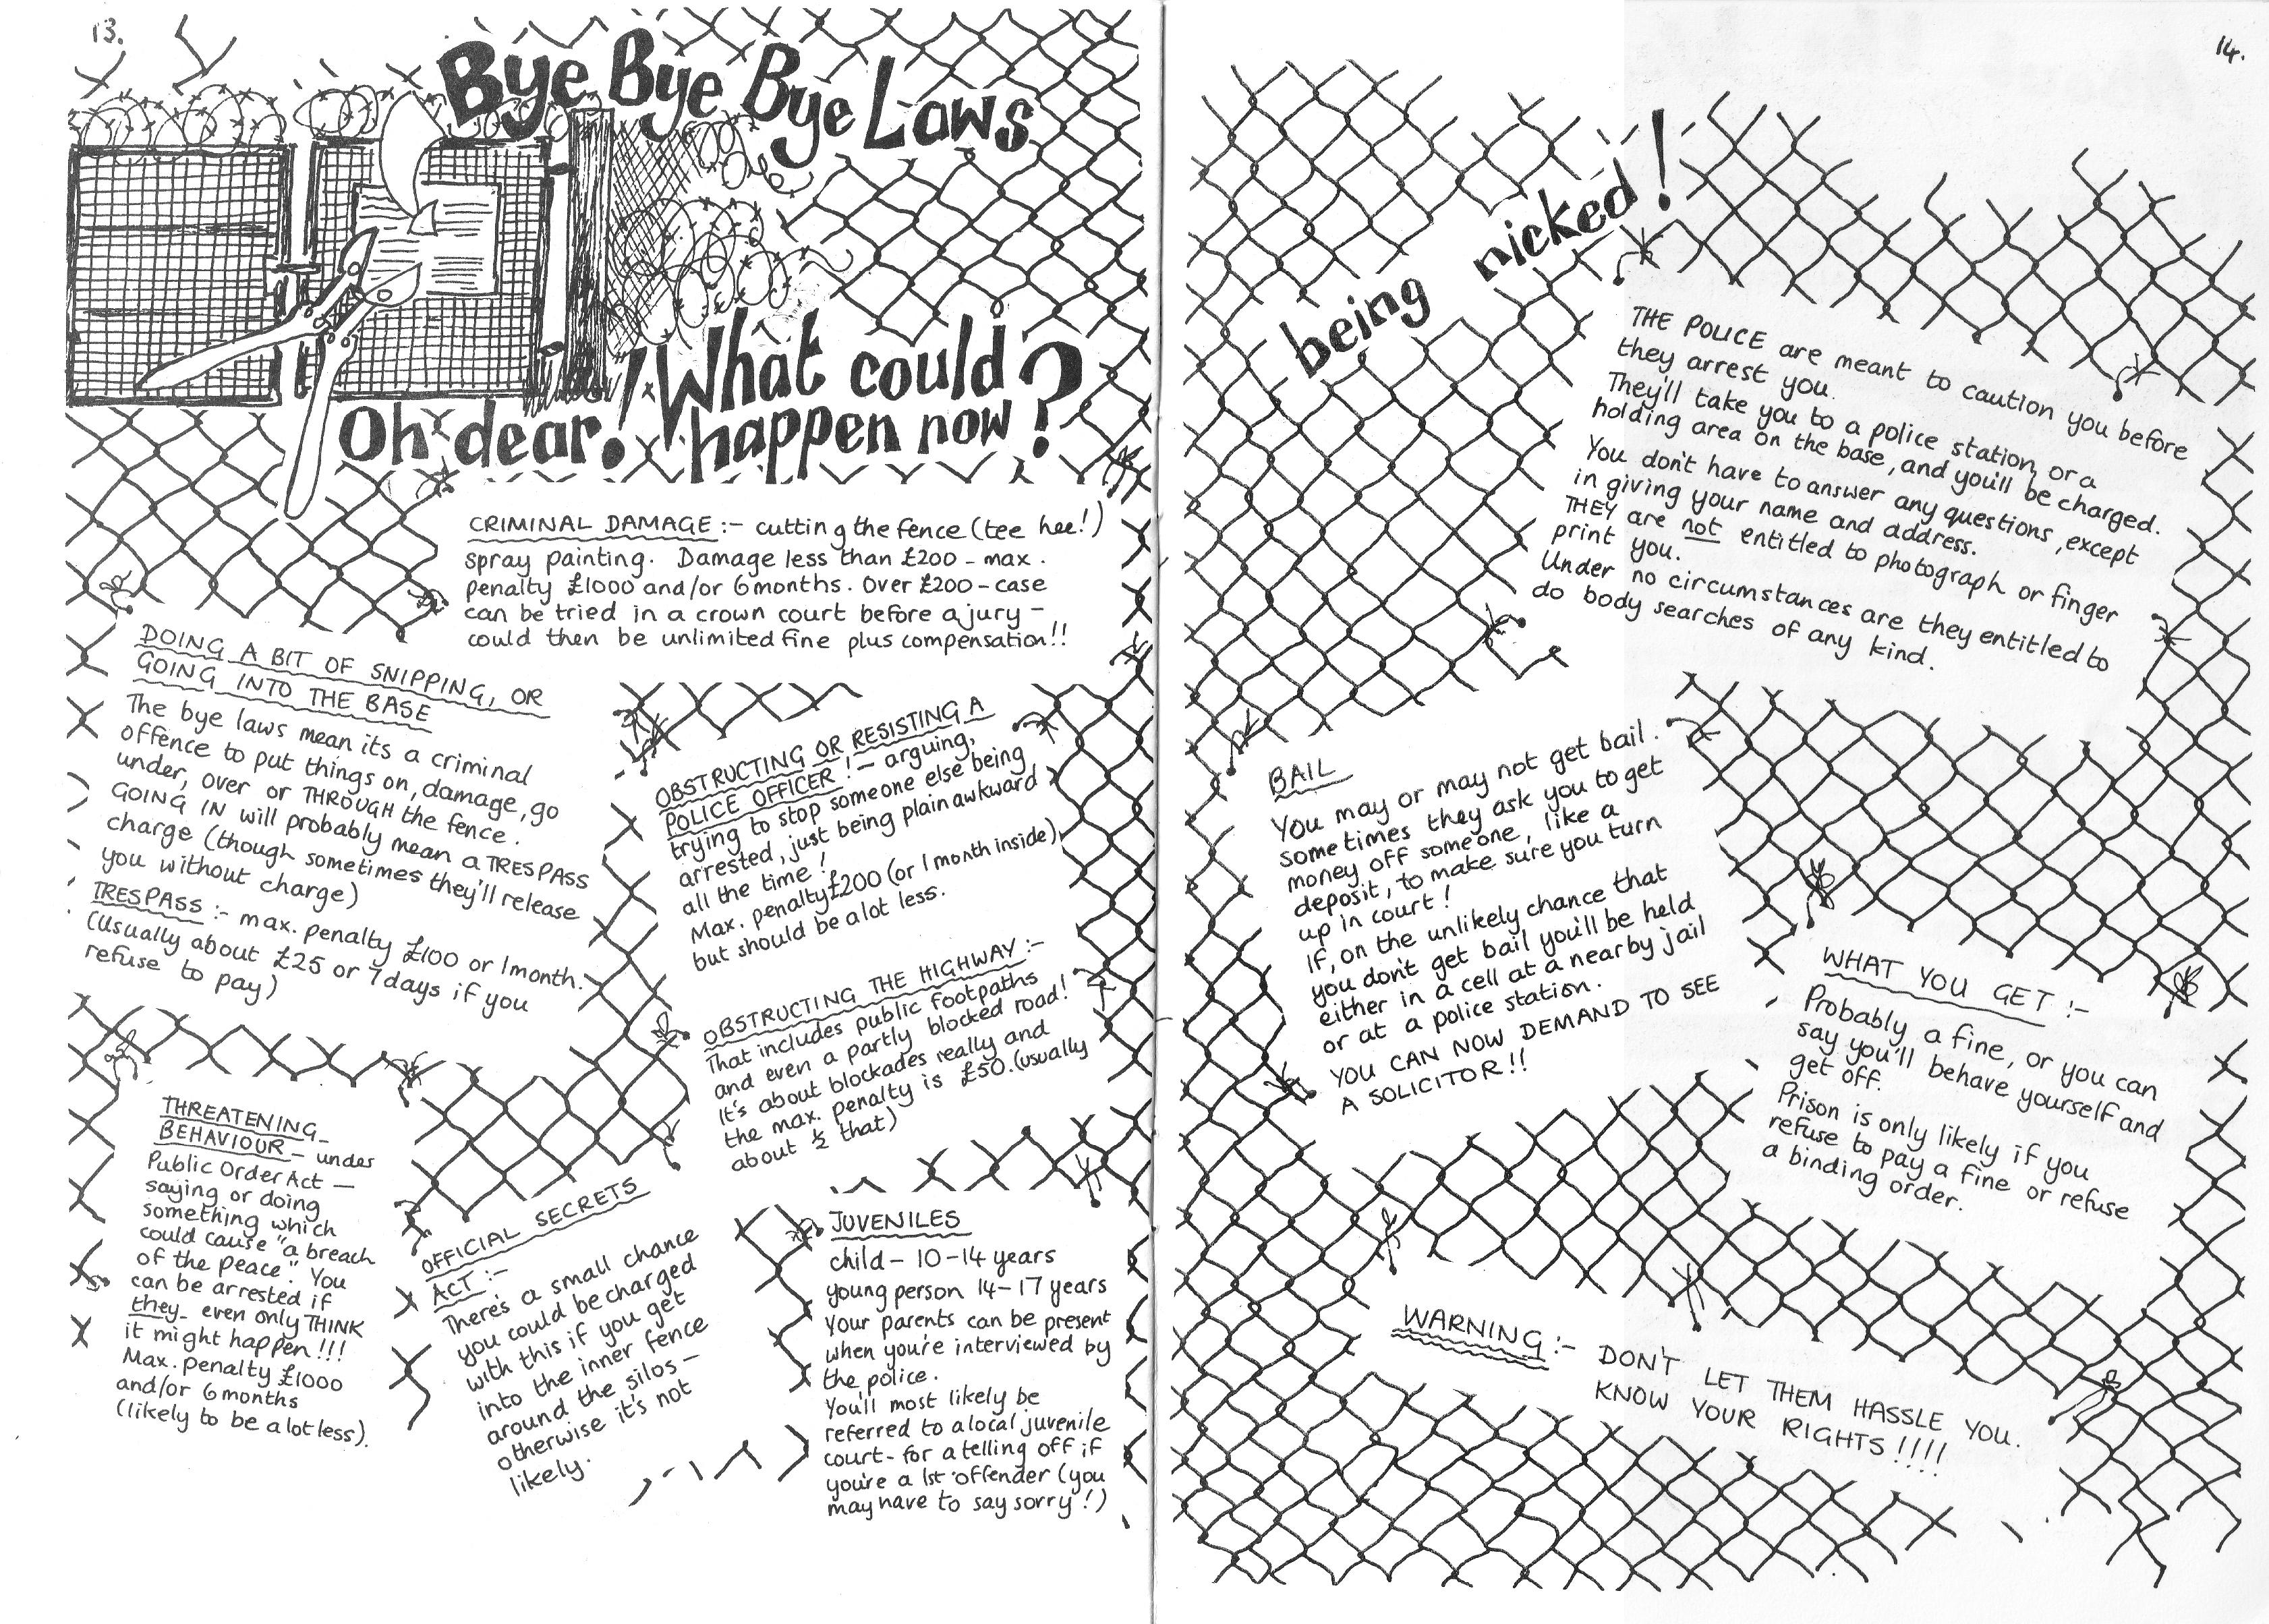 13.
Bye Bye Bye Laws
Oh dear! What could
happen now?
CRIMINAL DAMAGE :- cutting the fence (tee hee!)
spray painting. Damage less than £200 - max.
penalty £1000 and/or 6 months. Over £200 - case
can be tried in a crown court before a jury -
could then be unlimited fine plus compensation!!
DOING A BIT OF SNIPPING, OR
GOING INTO THE BASE
The bye laws mean its a criminal
offence to put things on, damage, go
under, over or THROUGH the fence.
GOING IN will probably mean a TRESPASS
charge (though sometimes they'll release
you without charge)
TRESPASS :- max. penalty £100 or 1 month.
(Usually about £25 or 7 days if you
refuse to pay)
OBSTRUCTING OR RESISTING A
POLICE OFFICER :- arguing,
trying to stop someone else being
arrested, just being plain awkward
all the time!
Max. penalty £200 (or 1 month inside)
but should be a lot less.
OBSTRUCTING THE HIGHWAY :-
That includes public footpaths
and even a partly blocked road!
It's about blockades really and
the max. penalty is £50. (usually
about ½ that)
THREATENING
BEHAVIOUR - under
Public Order Act -
saying or doing
something which
could cause "a breach
of the peace". You
can be arrested if
they even only THINK
it might happen!!!
Max. penalty £1000
and/or 6 months
(likely to be a lot less).
OFFICIAL SECRETS
ACT :-
There's a small chance
you could be charged
with this if you get
into the inner fence
around the silos -
otherwise it's not
likely.
JUVENILES
child - 10-14 years
young person 14-17 years
Your parents can be present
when you're interviewed by
the police.
You'll most likely be
referred to a local juvenile
court - for a telling off if
you're a 1st offender (you
may have to say sorry!)
14.
being nicked!
THE POLICE are meant to caution you before
they arrest you.
They'll take you to a police station, or a
holding area on the base, and you'll be charged.
You don't have to answer any questions, except
in giving your name and address.
THEY are not entitled to photograph or finger
print you.
Under no circumstances are they entitled to
do body searches of any kind.
BAIL
You may or may not get bail.
Sometimes they ask you to get
money off someone, like a
deposit, to make sure you turn
up in court!
If, on the unlikely chance that
you don't get bail you'll be held
either in a cell at a nearby jail
or at a police station.
YOU CAN NOW DEMAND TO SEE
A SOLICITOR!!
WHAT YOU GET :-
Probably a fine, or you can
say you'll behave yourself and
get off.
Prison is only likely if you
refuse to pay a fine or refuse
a binding order.
WARNING :- DON'T LET THEM HASSLE YOU.
KNOW YOUR RIGHTS!!!!